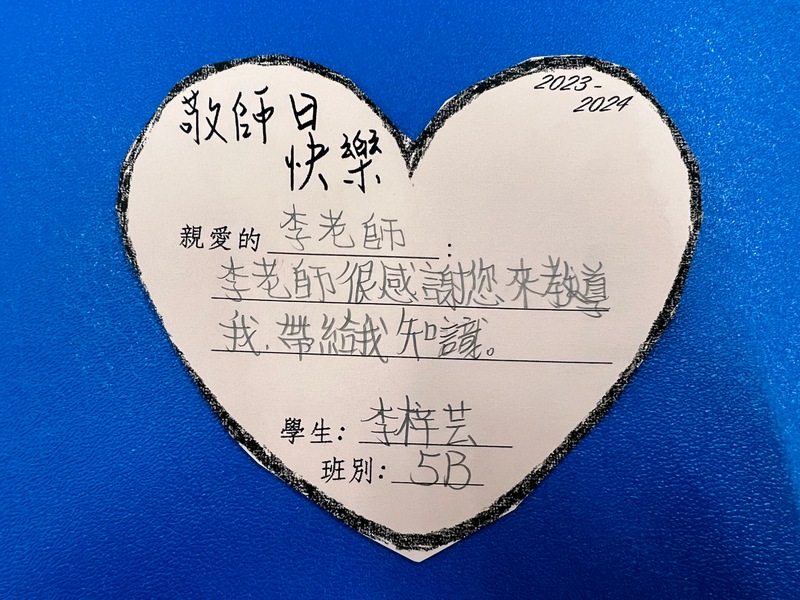 2023-
2024
敬師日
快樂
親愛的 李老師：
李老師很感謝您來教導
我，帶給我知識。
學生：李梓芸
班別：5B